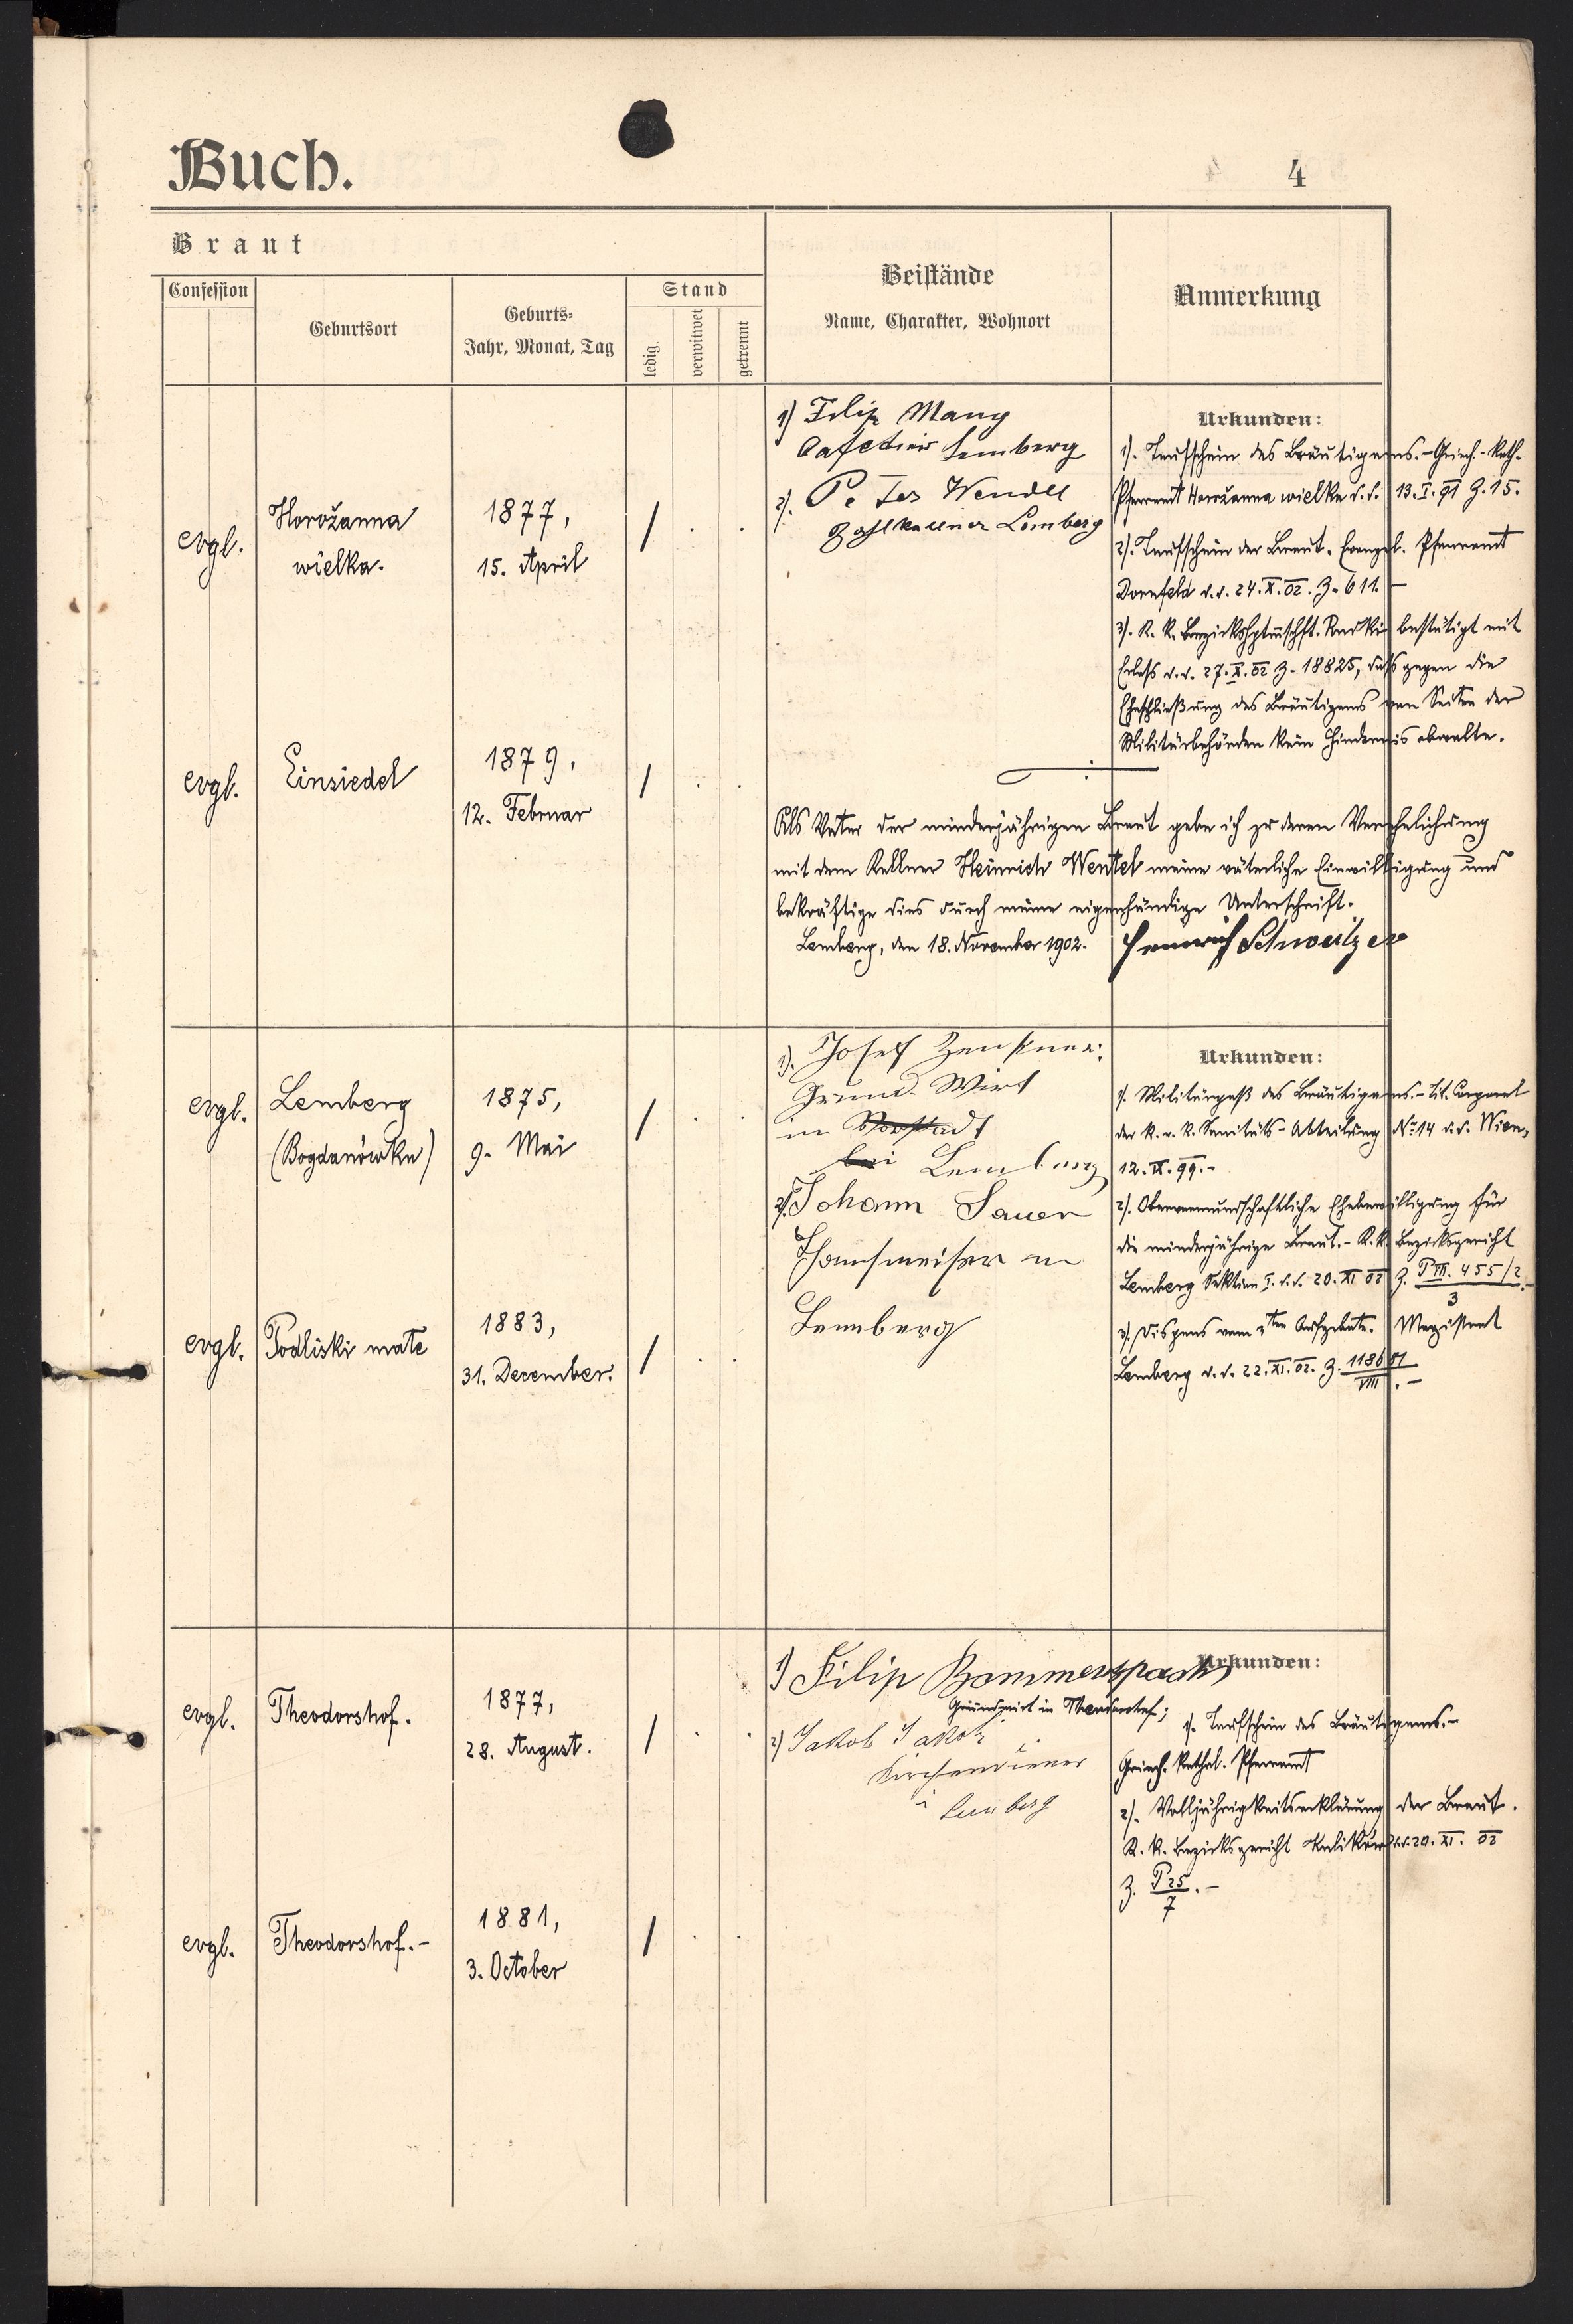 Buch.
4
Braut
Confession
Geburtsort
Geburts-
Jahr, Monat, Tag
Stand
ledig
verwitwet
getrennt
Beistände
Name, Charakter, Wohnort
Anmerkung
evgl.
Horožanna
wielka.
1877,
15. April
/
1) Filip Mang
Cafetier Lemberg
2). Peter Wendel
Zahlkellner Lemberg
Urkunden:
1). Taufschein des Bräutigams.- Griech.-Kath.
Pfarramt Horožanna wielka d.d. 13.I.91 Z.15.
2). Taufschein der Braut. Evangel. Pfarramt
Dornfeld d.d. 24.X.02. Z. 611.-
3). K. k. Bezirkshptmschft. Rudki bestätigt mit
Erlass d.d. 27.X.02 Z. 18825, dass gegen die
Eheschließung des Bräutigams von Seiten der
Militärbehörden kein Hindernis obwalte.
evgl.
Einsiedel
1879,
12. Februar
/
Als Vater der minderjährigen Braut gebe ich zu deren Verehelichung
mit dem Kellner Heinrich Wentel meine väterliche Einwilligung und
bekräftige dies durch meine eigenhändige Unterschrift.
Lemberg, den 18. November 1902.
Heinrich Schweitzer
evgl.
Lemberg
(Bogdanówka)
1875,
9. Mai
/
1). Josef
Grund. Wirt
in Vorstadt
bei Lemberg
2). Johann Sauer
in
Lemberg
Urkunden:
1). Militärpaß des Bräutigams.- Tit. Corporal
der k. u. k. Sanitäts-Abteilung No 14 d.d. Wien,
12.IX.99.-
2). Obervormundschaftliche Ehebewilligung für
die minderjährige Braut.- K.k. Bezirksgericht
Lemberg Sektion I. d.d. 20.XI 02 Z. P III. 455/2
3
3). Dispens vom 3ten Aufgebote. Magistrat
Lemberg d.d. 22.XI.02. Z. 118601
VIII .-
evgl.
Podliski małe
1883,
31. December.
/
evgl.
Theodorshof.
1877,
28. August.
/
1) Filip Bommerspach
Grundwirt in Theodorshof;
2) Jakob Jakobi
Kirchendiener
Lemberg
Urkunden:
1). Taufschein des Bräutigams.-
Griech. kathol. Pfarramt
2). Volljährigkeitserklärung der Braut.
K. k. Bezirksgericht Kulików d.d. 20.XI.02
Z. P 25 .-
7
evgl.
Theodorshof.-
1881,
3. October
/